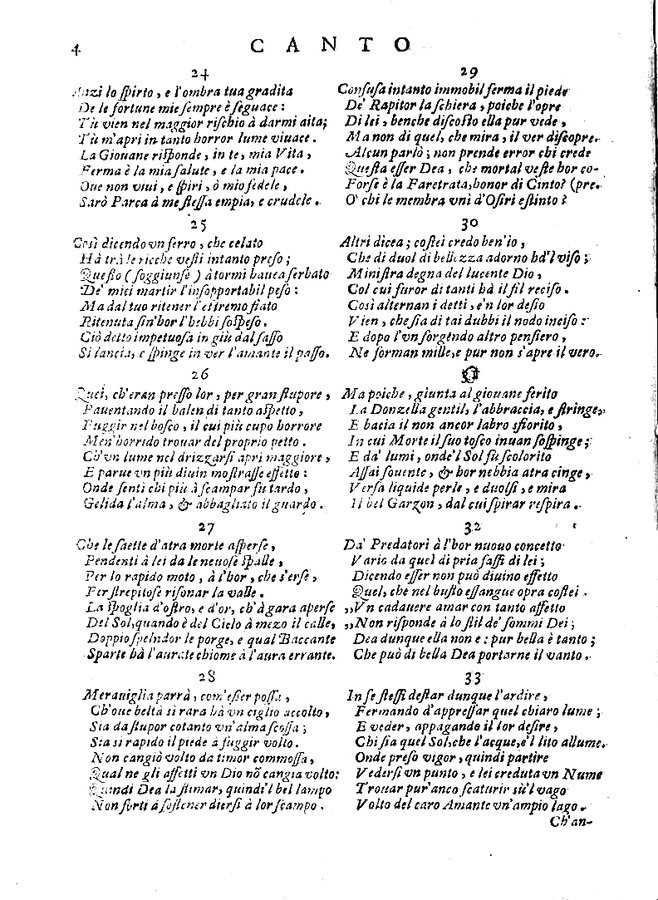 4
CANTO
24
Anzi lo ſpirto, e l'ombra tua gradita
De le fortune mie ſempre è ſeguace:
Tù vien nel maggior riſchio à darmi aita;
Tù m'apri in tanto horror lume viuace.
La Giouane riſponde, in te, mia Vita,
Ferma è la mia ſalute, e la mia pace.
Oue non viui, e ſpiri, ò mio fedele,
Sarò Parca à me ſteſſa empia, e crudele.
25
Così dicendo vn ferro, che celato
Hà trà le ricche veſti intanto preſo;
Queſto (ſoggiunſe) à tormi hauea ſerbato
De' miei martir l'inſopportabil peſo:
Ma dal tuo ritener l'eſtremo fiato
Ritenuta ſin'hor l'hebbi ſoſpeſo.
Ciò detto impetuoſa in giù dal ſaſſo
Si lancia, e ſpinge in ver l'amante il paſſo.
26
Quei, ch'eran preſſo lor, per gran ſtupore,
Pauentando il balen di tanto aſpetto,
Fuggir nel boſco, il cui più cupo horrore
Men'horrido trouar del proprio petto.
Ch'vn lume nel drizzarſi apri maggiore,
E parue vn più diuin moſtraſſe effetto:
Onde ſentì chi più à ſcampar fu tardo,
Gelida l'alma, & abbagliato il guardo.
27
Che le ſaette d'atra morte aſperſe,
Pendenti à lei da le neuoſe ſpalle,
Per lo rapido moto, à l'hor, che s'erſe,
Fer ſtrepitoſe riſonar la valle.
La ſpoglia d'oſtro, e d'or, ch'à gara aperſe
Del Sol, quando è del Cielo à mezo il calle,
Doppio ſplendor le porge, e qual Baccante
Sparte hà l'aurate chiome à l'aura errante.
28
Merauiglia parrà, com'eſſer poſſa,
Ch'oue beltà sì rara hà vn ciglio accolto,
Sia da ſtupor cotanto vn'alma ſcoſſa;
Sia sì rapido il piede à fuggir volto.
Non cangiò volto da timor commoſſa,
Qual ne gli aſſetti vn Dio nõ cangia volto:
Quindi Dea la ſtimar, quindi'l bel lampo
Non forti à ſoſtener dierſi à lor ſcampo.
29
Confuſa intanto immobil ferma il piede
De' Rapitor la ſchiera, poiche l'opre
Di lei, benche diſcoſto ella pur vede,
Ma non di quel, che mira, il ver diſcopre.
Alcun parlò; non prende error chi crede
Queſta eſſer Dea, che mortal veſte hor co-
Forſe è la Faretrata, honor di Cinto? (pre.
O' chi le membra vnì d'Oſiri eſtinto?
30
Altri dicea; coſtei credo ben'io,
Che di duol di bellezza adorno hà'l viſo;
Miniſtra degna del lucente Dio,
Col cui furor di tanti hà il fil reciſo.
Così alternan i detti, e'n lor deſio
Vien, che ſia di tai dubbi il nodo inciſo:
E dopo l'vn ſorgendo altro penſiero,
Ne forman mille, e pur non s'apre il vero.
Ma poiche, giunta al giouane ferito
La Donzella gentil, l'abbraccia, e ſtringe,
E bacia il non ancor labro sfiorito,
In cui Morte il ſuo toſco inuan ſoſpinge;
E da' lumi, onde'l Sol fu ſcolorito
Aſſai ſouente, & hor nebbia atra cinge,
Verſa liquide perle, e duolſi, e mira
Il bel Garzon, dal cui ſpirar reſpira.
32
Da' Predatori à l'hor nuouo concetto
Vario da quel di pria faſſi di lei;
Dicendo eſſer non può diuino effetto
Quel, che nel buſto eſſangue opra coſtei.
,,Vn cadauere amar con tanto affetto
,,Non riſponde à lo ſtil de' ſommi Dei;
Dea dunque ella non è: pur bella è tanto;
Che può di bella Dea portarne il vanto.
33
In ſe ſteſſi deſtar dunque l'ardire,
Fermando d'appreſſar quel chiaro lume;
E veder, appagando il lor deſire,
Chi ſia quel Sol, che l'acque, e'l lito allume.
Onde preſo vigor, quindi partire
Vederſi vn punto, e lei creduta vn Nume
Trouar pur'anco ſcaturir sù'l vago
Volto del caro Amante vn'ampio lago.
Ch'an-